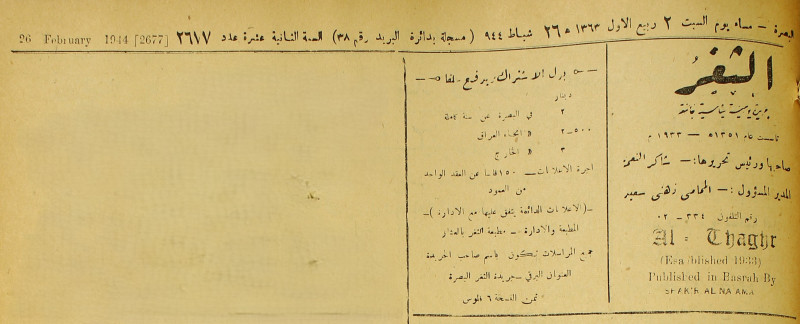 البصرة – مساء يوم السبت ٢ ربيع الاول ١٣٦٣ ه ٢٦ شباط ٩٤٤ ( مسجلة بدائرة البريد رقم ٣٨) السنة الثانية عشرة عدد ٢٦١٧ 26 February 1944 [2677]
الثغر
جريدة يومية سياسية جامعة
تأسست عام ١٣٥١ه – ١٩٣٣ م
صاحبها ورئيس تحريرها:– شاكر النعمة
المدير المسؤول :– المحامي ذهني سعيد
رقم التلفون ٢٣٤ – ٠٢
Al - Thaghr
(Established 1933)
Published in Basrah By
SHAKIR AL NAAMA
بدل الاشتراك يدفع سلفا
دينار
٢ في البصرة عن سنة كاملة
٥٠٠–٢ » انحاء العراق
٣ » الخارج
اجرة الاعلانات – ١٥٠ فلسا عن العقد الواحد
من العمود
–(الاعلانات الدائمة يتفق عليها مع الادارة )–
المطبعة والادارة – مطبعة الثغر بالعشار
جميع المراسلات تكون باسم صاحب الجريدة
العنوان البرقي – جريدة الثغر البصرة
ثمن النسخة ٦ فلوس